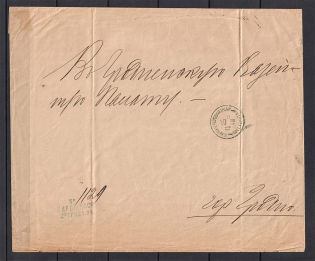 Въ Гродненскую Казен-
ную Палату. —
1129
гор. Гродно.